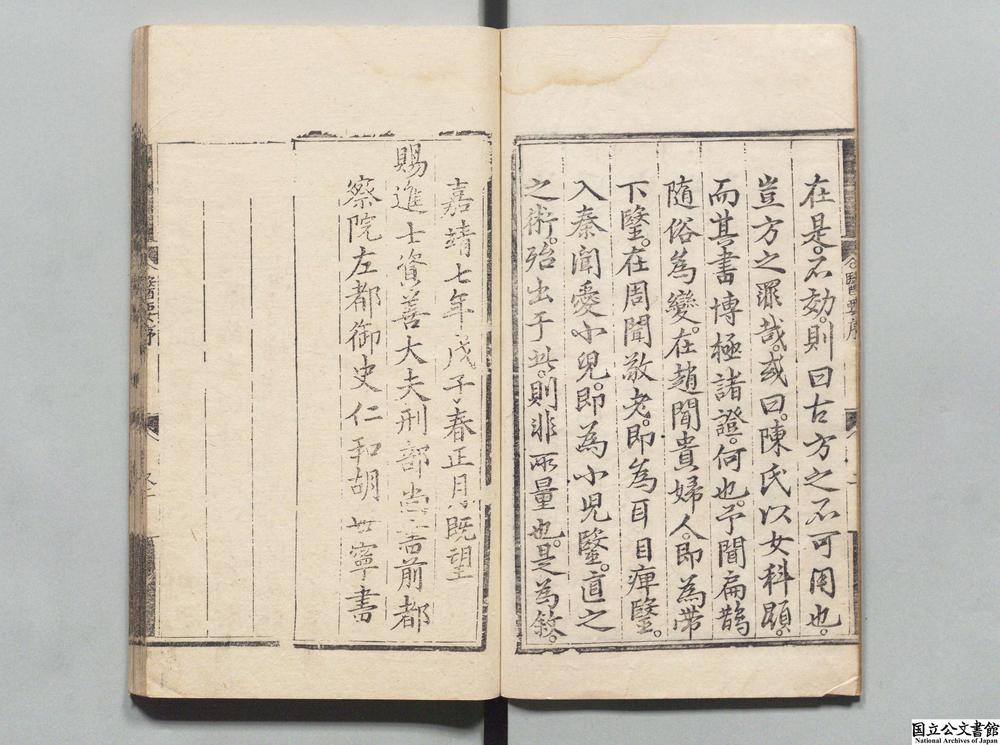 在是。不効。則曰古方之不可用也。
豈方之罪哉。或曰。陳氏以女科顯。
而其書博極諸證。何也。予聞扁鵲
隨俗爲變。在趙聞貴婦人。即爲帶
下毉。在周聞敬老。即爲耳目痺毉。
入秦聞愛小兒。即為小兒毉。道之
之術。殆出于此。則非所量也。是為敘。
嘉靖七年戊子春正月既望
賜進士資善大夫刑部尚書前都
察院左都御史仁和胡世寧書
国立公文書館
National Archives of Japan